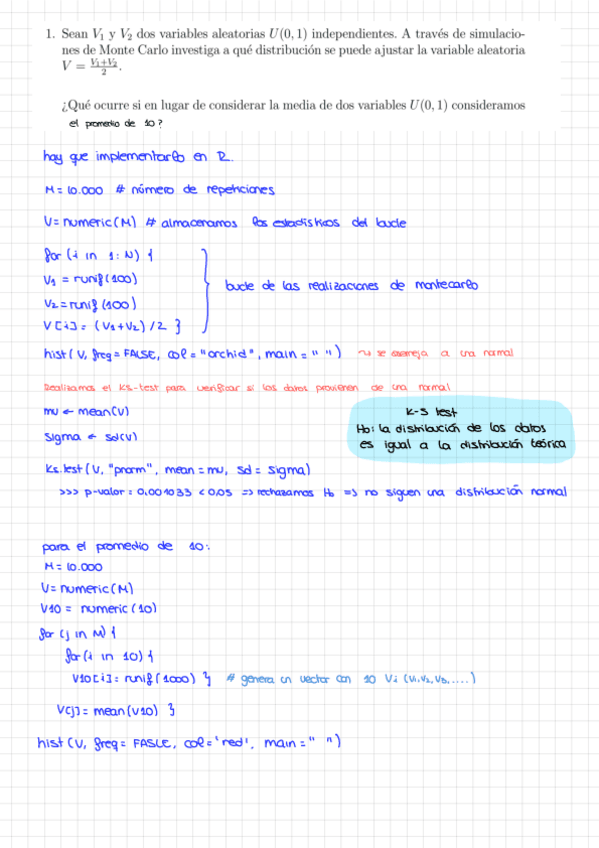 1. Sean V₁ y V₂ dos variables aleatorias U(0, 1) independientes. A través de simulacio-
nes de Monte Carlo investiga a qué distribución se puede ajustar la variable aleatoria
V = (V₁+V₂)/2.
¿Qué ocurre si en lugar de considerar la media de dos variables U(0, 1) consideramos
el promedio de 10?
hay que implementarlo en R.
M = 10.000 # número de repeticiones
V = numeric(M) # almacenamos los estadísticos del bucle
for (i in 1:N) {
V₁ = runif(100)
V₂ = runif(100)
V[i] = (V₁+V₂)/2 }
bucle de las realizaciones de montecarlo
hist(V, freq = FALSE, col = "orchid", main = " ") ⤳ se asemeja a una normal
Realizamos el KS-test para verificar si los datos provienen de una normal
mu ← mean(V)
sigma ← sd(V)
Ks.test(V, "pnorm", mean = mu, sd = sigma)
>>> p-valor = 0,001033 < 0.05 => rechazamos H₀ => no siguen una distribución normal
K-S test
H₀: la distribución de los datos
es igual a la distribución teórica
para el promedio de 10:
M = 10.000
V = numeric(M)
V10 = numeric(10)
for (j in M) {
for (i in 10) {
V10[i] = runif(1000) } # genera un vector con 10 Vi (V₁, V₂, V₃, ....)
V[j] = mean(V10) }
hist(V, freq = FASLE, col = 'red', main = " ")